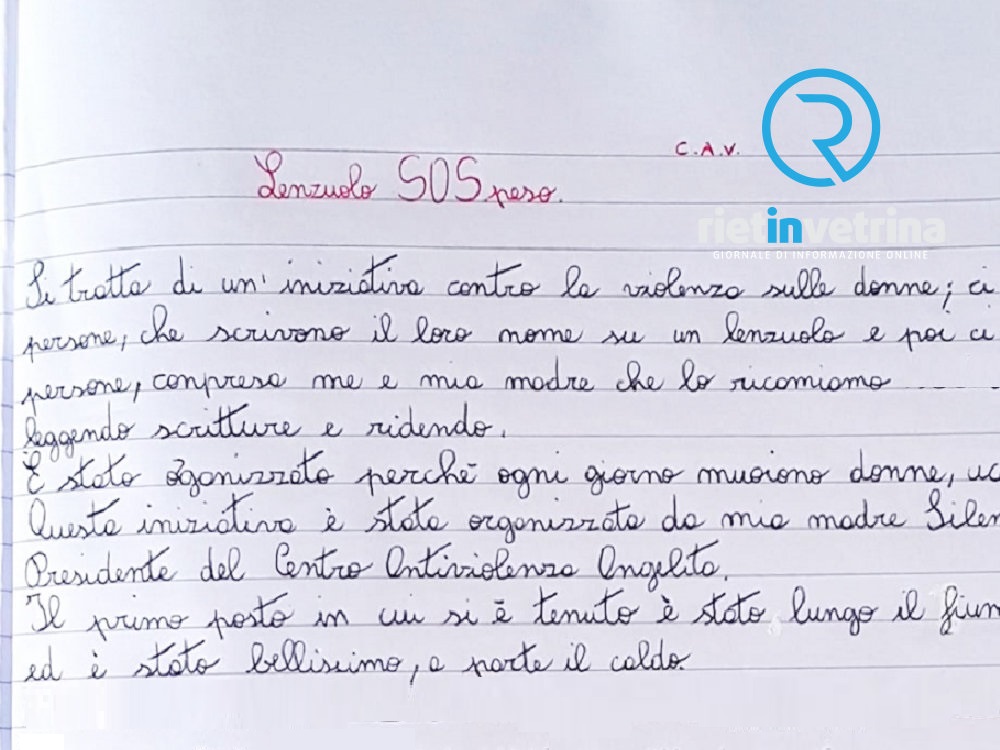 C.A.V.
Lenzuolo SOSpeso.
rietinvetrina
GIORNALE DI INFORMAZIONE ONLINE
Si tratta di un'iniziativa contro la violenza sulle donne; ci
persone, che scrivono il loro nome su un lenzuolo e poi ci
persone, compresa me e mia madre che lo ricamiamo
leggendo scritture e ridendo.
È stato oganizzato perchè ogni giorno muoiono donne, uc
Questa iniziativa è stata organizzata da mia madre Silen
Presidente del Centro Antiviolenza Angelita.
Il primo posto in cui si è tenuto è stato lungo il fium
ed è stato bellissimo, a parte il caldo